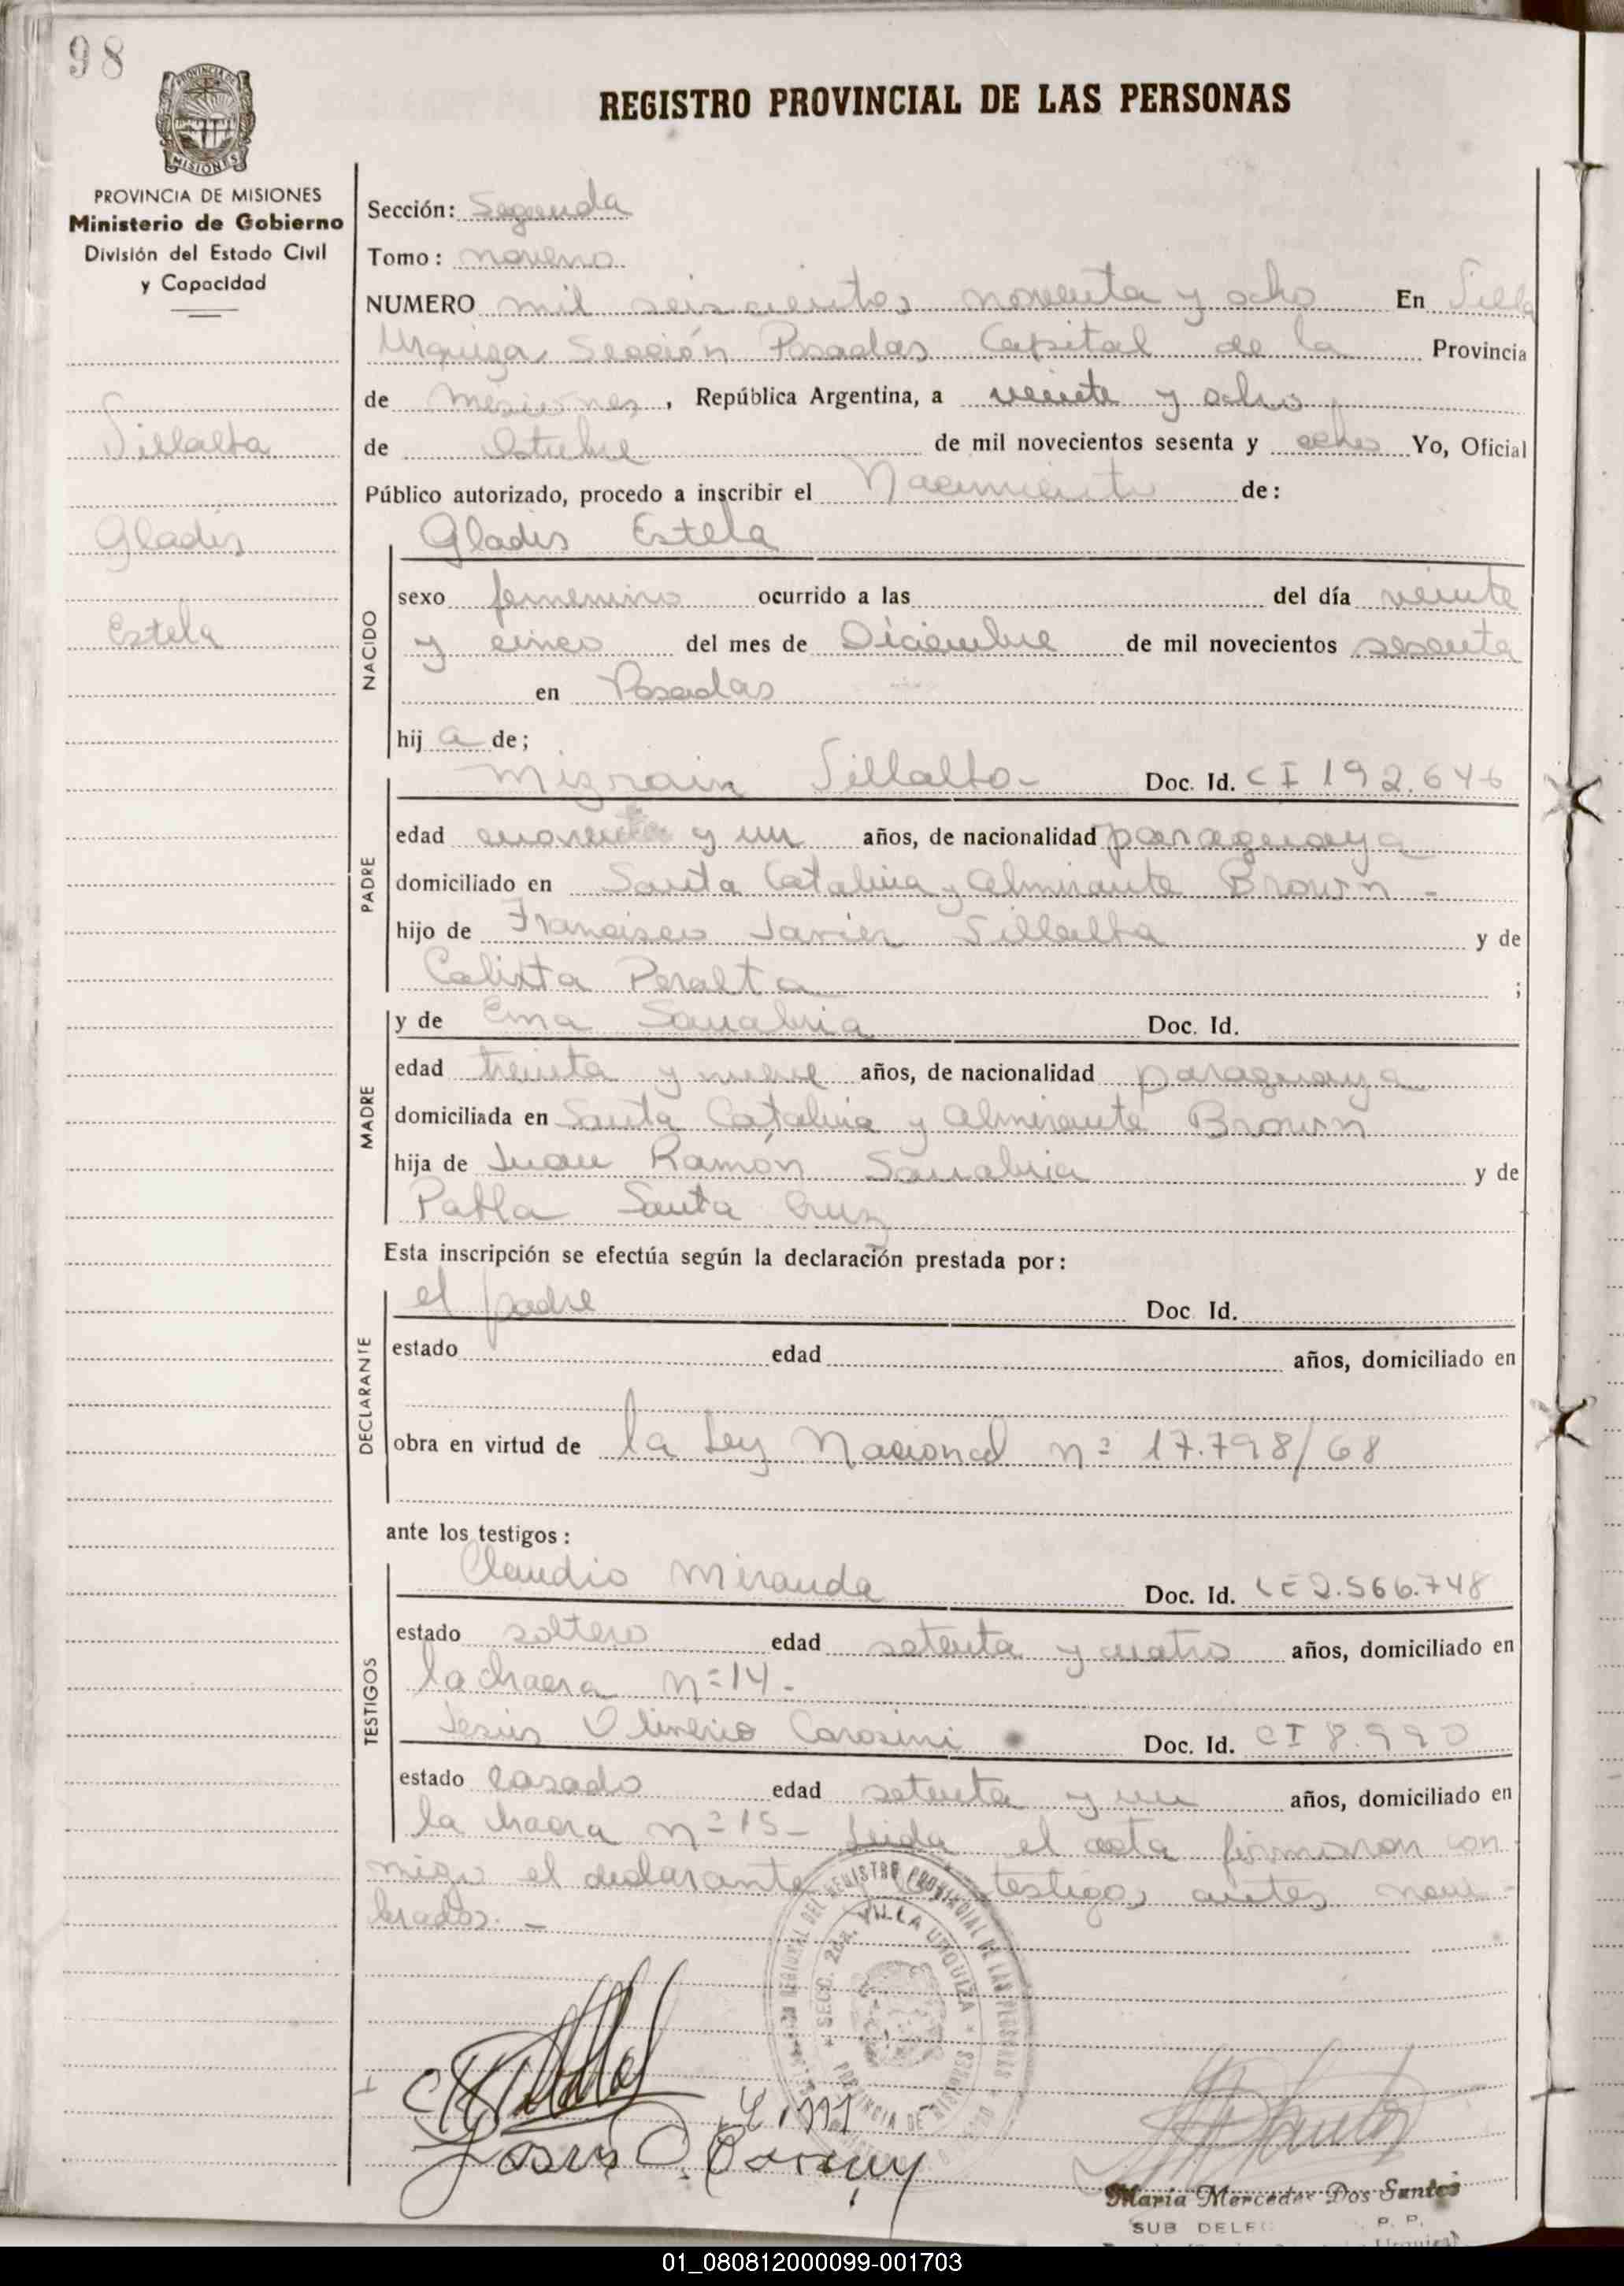 98
PROVINCIA DE
MISIONES
REGISTRO PROVINCIAL DE LAS PERSONAS
PROVINCIA DE MISIONES
Ministerio de Gobierno
División del Estado Civil
y Capacidad
Villalba
Gladis
Estela
Sección: Segunda
Tomo: noveno
NUMERO mil seiscientos noventa y ocho En Villa
Urquiza, Sección Posadas Capital de la Provincia
de Misiones, República Argentina, a veinte y ocho
de Octubre de mil novecientos sesenta y ocho Yo, Oficial
Público autorizado, procedo a inscribir el Nacimiento de:
Gladis Estela
NACIDO
sexo femenino ocurrido a las del día veinte
y cinco del mes de Diciembre de mil novecientos sesenta
en Posadas
hija de;
PADRE
Villalba- Doc. Id. CI 192.646
edad cuarenta y un años, de nacionalidad paraguaya
domiciliado en Santa Catalina y Almirante Brown -
hijo de Francisco Javier Villalba y de
Calixta Peralta ;
MADRE
y de Ema Sanabria Doc. Id.
edad treinta y nueve años, de nacionalidad paraguaya
domiciliada en Santa Catalina y Almirante Brown
hija de Juan Ramon Sanabria y de
Pabla Santa Cruz
Esta inscripción se efectúa según la declaración prestada por:
DECLARANTE
el padre Doc. Id.
estado edad años, domiciliado en
obra en virtud de la Ley Nacional nº 17.798/68
ante los testigos:
TESTIGOS
Claudio Miranda Doc. Id. LE 2.566.748
estado soltero edad setenta y cuatro años, domiciliado en
la chacra nº 14 -
Jesús Carosini Doc. Id. CI 8.990
estado casado edad setenta y un años, domiciliado en
la chacra nº 15 - Leida el acta firmaron con
migo el declarante y los testigos antes nom-
brados. -
REGISTRO PROVINCIAL DE LAS PERSONAS
SECC. 2da. VILLA URQUIZA
PROVINCIA DE MISIONES
María Mercedes Dos Santos
SUB DELE
01_080812000099-001703